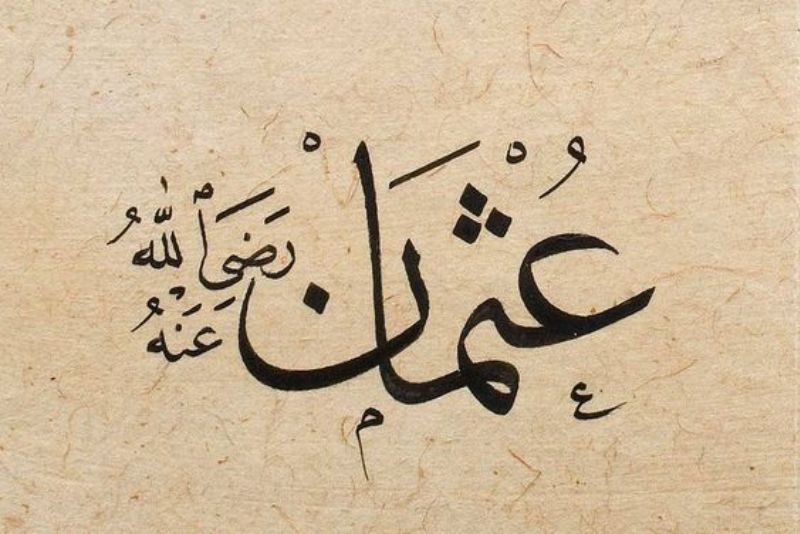 عُثْمَانْ
رَضَىَ ٱللّٰهُ
عَنْهُ